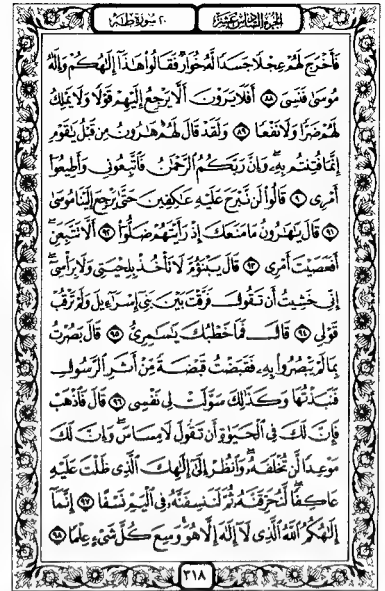 الجزء السادس عشر
٢٠ سورة طه
فَأَخْرَجَ لَهُمْ عِجْلًا جَسَدًا لَّهُۥ خُوَارٌ فَقَالُوا۟ هَٰذَآ إِلَٰهُكُمْ وَإِلَٰهُ
مُوسَىٰ فَنَسِىَ ٨٨ أَفَلَا يَرَوْنَ أَلَّا يَرْجِعُ إِلَيْهِمْ قَوْلًا وَلَا يَمْلِكُ
لَهُمْ ضَرًّا وَلَا نَفْعًا ٨٩ وَلَقَدْ قَالَ لَهُمْ هَٰرُونُ مِن قَبْلُ يَٰقَوْمِ
إِنَّمَا فُتِنتُم بِهِۦ وَإِنَّ رَبَّكُمُ ٱلرَّحْمَٰنُ فَٱتَّبِعُونِى وَأَطِيعُوٓا۟
أَمْرِى ٩٠ قَالُوا۟ لَن نَّبْرَحَ عَلَيْهِ عَٰكِفِينَ حَتَّىٰ يَرْجِعَ إِلَيْنَا مُوسَىٰ
٩١ قَالَ يَٰهَٰرُونُ مَا مَنَعَكَ إِذْ رَأَيْتَهُمْ ضَلُّوٓا۟ ٩٢ أَلَّا تَتَّبِعَنِ
أَفَعَصَيْتَ أَمْرِى ٩٣ قَالَ يَبْنَؤُمَّ لَا تَأْخُذْ بِلِحْيَتِى وَلَا بِرَأْسِىٓ
إِنِّى خَشِيتُ أَن تَقُولَ فَرَّقْتَ بَيْنَ بَنِىٓ إِسْرَٰٓءِيلَ وَلَمْ تَرْقُبْ
قَوْلِى ٩٤ قَالَ فَمَا خَطْبُكَ يَٰسَٰمِرِىُّ ٩٥ قَالَ بَصُرْتُ
بِمَا لَمْ يَبْصُرُوا۟ بِهِۦ فَقَبَضْتُ قَبْضَةً مِّنْ أَثَرِ ٱلرَّسُولِ
فَنَبَذْتُهَا وَكَذَٰلِكَ سَوَّلَتْ لِى نَفْسِى ٩٦ قَالَ فَٱذْهَبْ
فَإِنَّ لَكَ فِى ٱلْحَيَوٰةِ أَن تَقُولَ لَا مِسَاسَ وَإِنَّ لَكَ
مَوْعِدًا لَّن تُخْلَفَهُۥ وَٱنظُرْ إِلَىٰٓ إِلَٰهِكَ ٱلَّذِى ظَلْتَ عَلَيْهِ
عَاكِفًا لَّنُحَرِّقَنَّهُۥ ثُمَّ لَنَنسِفَنَّهُۥ فِى ٱلْيَمِّ نَسْفًا ٩٧ إِنَّمَآ
إِلَٰهُكُمُ ٱللَّهُ ٱلَّذِى لَآ إِلَٰهَ إِلَّا هُوَ وَسِعَ كُلَّ شَىْءٍ عِلْمًا ٩٨
٣١٨